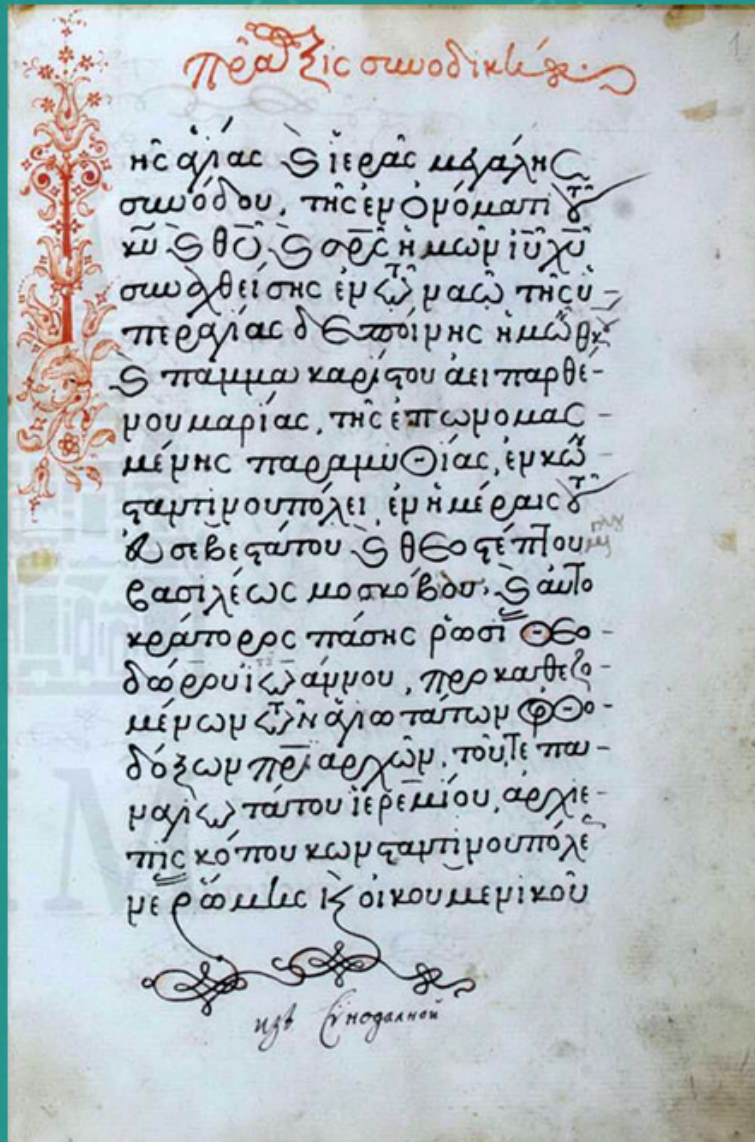 πρᾶξις συνοδική
1
ῆς ἁγίας ϗ ἱερᾶς μεγάλης
συνόδου, τῆς ἐν ὀνόματι τοῦ
κῦ ϗ θῦ ϗ σρ̅ς ἡμῶν ἰῦ χῦ
συναχθείσης ἐν τῷ ναῷ τῆς ὑ-
περαγίας δεσποίνης ἡμῶν θκ̅
ϗ παμμακαρίστου ἀειπαρθέ-
νου μαρίας, τῆς ἐπωνομασ-
μένης παραμυθίας, ἐν κων
σταντινουπόλει ἐν ἡμέραις τοῦ
εὐσεβεστάτου ϗ θεοστέπτου
βασιλέως μοσκόβου, ϗ αὐτο
κράτορος πάσης ῥωσί θεο-
δώρου ἰωάννου, προκαθεζο
μένων τῶν ἁγιωτάτων ὀρθο-
δόξων πρ̅ιαρχῶν, τοῦ,τε πα-
ναγιωτάτου ἱερεμίου, ἀρχιε
πισκόπου κωνσταντινουπόλε
νέ ῥώμης ϗ οἰκουμενικοῦ
изъ Сѵнодалной